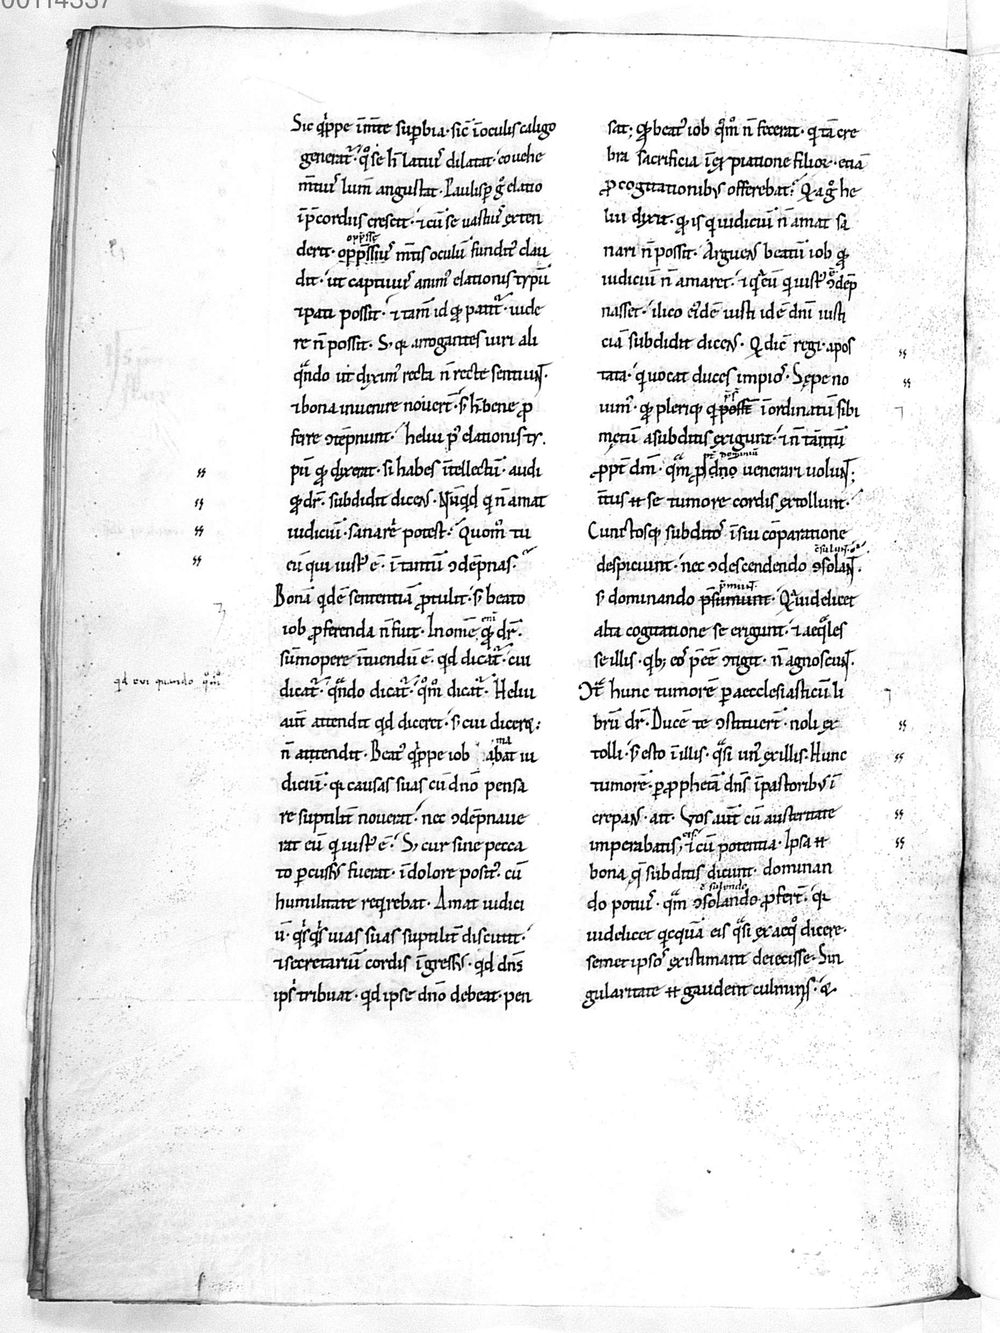 00114337
Sic q̇ppe in mte supbia· sic̄ in oculis caligo
generat̃· q°se h̄ latiꝰ dilatat· eo uehe
m̄tiꝰ lum̄ angustat· Paulisp g° elatio
in p̄cordiis crescit· ⁊ cū se uastiꝰ exten
derit· opp̄ssiꝰ m̄tis oculū fundit᷒ clau
dit· ut captiuꝰ animꝰ elationis typū
⁊ pati possit· ⁊ tam̄ id qđ patit᷒· uide
re n̄ possit· S; qa arrogantes uiri ali
qn̄do ut diximꝰ recta n̄ recte sentiunt·
⁊ bona inuenire nouer̄t· s; h̄ bene p
ferre ɔtēpnunt· heliu p̄ elationis ty
pū qđ dixerat· si habes in̄tellectū· audi
qđ dr̄· subdidit dicens· Nūqd q n̄ amat
iudiciū· sanari potest· Quom° tu
eū qui iustꝰ ē· in tantū ɔdēpnas·
Bonā qdē sententiā ptulit· s; beato
iob pferenda n̄ fuit· In om̄e eni qđ dr̄·
sūmopere intuendū ē· qd dicat᷒· cui
qd cui quando qm°
dicat᷒· qn̄do dicat᷒· qm° dicat᷒· Heliu
aut̄ attendit qd diceret· s; cui diceret;
n̄ attendit· Beatꝰ q̇ppe iob amabat iu
diciū· qa causas suas cū dn̄o pensa
re suptilit̄ nouerat· nec ɔdēpnaue
rat eū q iustꝰ ē· S; cur sine pecca
to pcussꝰ fuerat· in dolore positꝰ cū
humilitate reqrebat· Amat iudici
ū· qsqs uias suas suptilit̄ discutit·
⁊ secretariū cordis in̄gressꝰ· qd dn̄s
ipsi tribuat· qd ipse dn̄o debeat· pen
sat; Qđ beatꝰ iob qm° n̄ fecerat· q tā cre
bra sacrificia in expiatione filior̄· etiā
p cogitationibꝰ offerebat· Qa g° he
liu dixit· qđ is q iudiciū n̄ amat sa
nari n̄ possit· Arguens beatū iob qđ
iudiciū n̄ amaret· ⁊ q̄ eū q iustꝰ ē ɔdēp
nasset· ilico eidē iusti id ē dn̄i iusti
ciā subdidit dicens· Q dic̄ regi· apos
tata· q uocat duces impios· Sepe no
uimꝰ qđ pleriq; q posse in ordinatū sibi
metū a subditis exigunt· ⁊ n̄ tantū
ppt̄ dm̄· qm̄ p dn̄o uenerari uolunt·
Intꝰ &t se tumore cordis extollunt·
Cunctosq; subditos in sui cōparatione
despiciunt· nec ɔdescendendo ɔsolant·
s; dominando p̄munt· Quia uidelicet
alta cogitatione se erigunt· ⁊ aeqles
se illis· qb; eos p̄ee ɔtigit· n̄ agnoscunt·
Cont̄ hunc tumorē p aecclesiasticū li
brū dr̄· Ducē te ɔstituer̄t· noli ex
tolli· s; esto in illis· qsi unꝰ ex illis· Hunc
tumorē· p pphetā dn̄s in pastoribꝰ in
crepans· ait· Vos aut̄ cū austeritate
imperabatis eis· ⁊ cū potentia· Ipsa &t
bona q̄ subditis dicunt· dominan
do potiꝰ qm̄ ɔsolando pfert̄· qa
uidelicet qcqua eis qsi ex aeq° dicere·
semet ipsos existimant deiecisse· Sin
gularitate &t gaudent culminis·